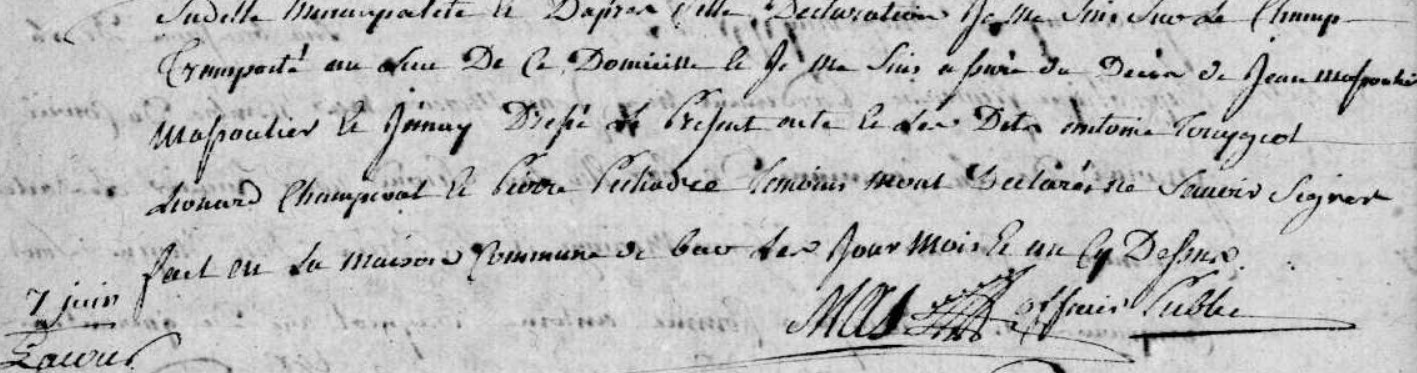 Suditte municipalité et Dapres cette Declaration Je me suis sur le Champ
Transporté au Lieu De Ce Domicille et Je me suis assuré du Decès de Jean maspoutier
Maspoutier et Jeinay Dressé le present acte et les Dits antoine
Leonard Champeval et pierre temoins mont Declarés ne Savoir Signer
fait en La maison Commune de bar Les Jour mois et an Cy Dessus.
7 juin
MAS officier Public